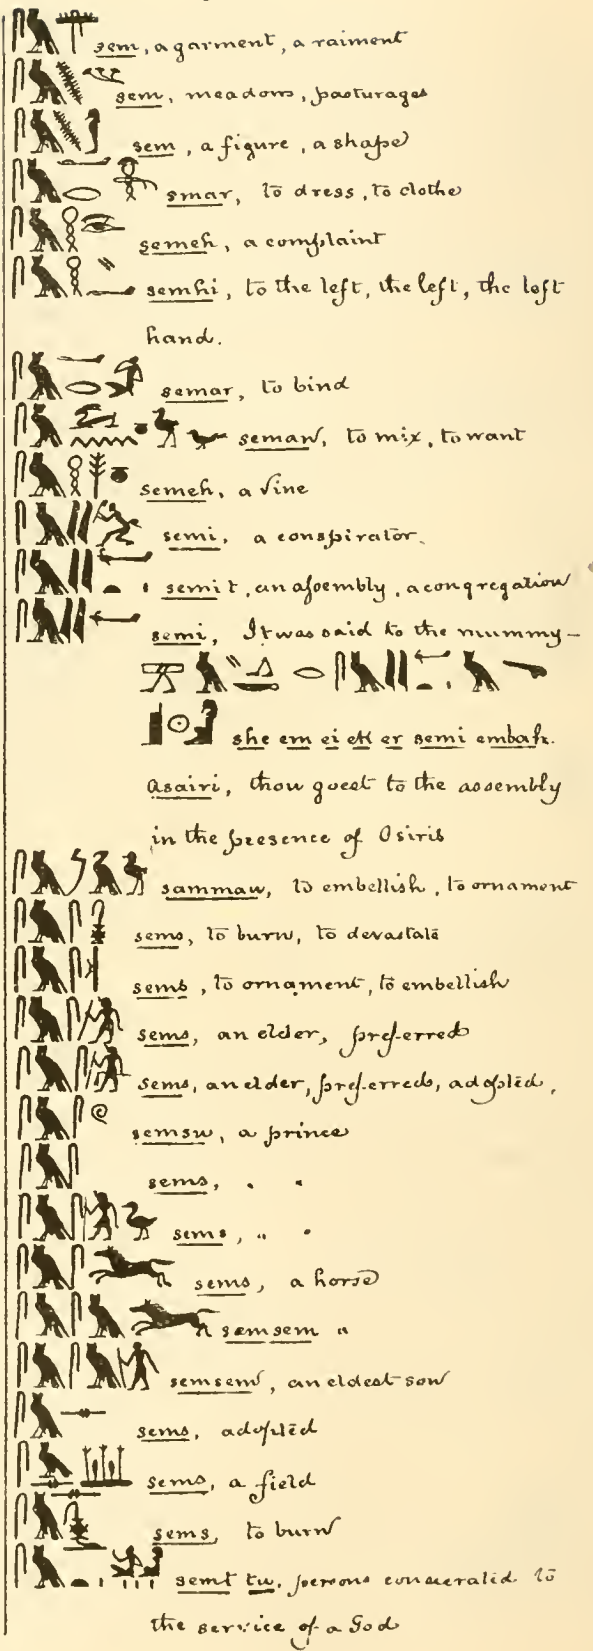 sem, a garment, a raiment
sem, meadows, pasturages
sem, a figure, a shape
smar, to dress, to clothe
semeh, a complaint
semhi, to the left, the left, the left
hand.
semar, to bind
seman, to mix, to want
semeh, a vine
semi, a conspirator.
semit, an assembly, a congregation
semi, It was said to the mummy—
she em ei ek er semi embah.
Asairi, thou goest to the assembly
in the presence of Osiris
sammau, to embellish, to ornament
sems, to burn, to devastate
sems, to ornament, to embellish
sems, an elder, preferred
sems, an elder, preferred, adopted,
semsu, a prince
sems, " "
sems, " "
sems, a horse
semsem "
semsem, an eldest son
sems, adopted
sems, a field
sems, to burn
semt tu, persons consecrated to
the service of a God